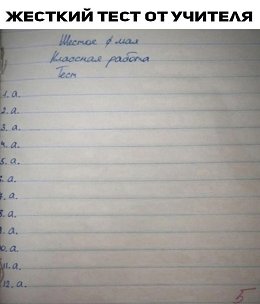 ЖЕСТКИЙ ТЕСТ ОТ УЧИТЕЛЯ
Шестое мая
Классная работа
Тест
1. а.
2. а.
3. а.
4. а.
5. а.
6. а.
7. а.
8. а.
9. а.
10. а.
11. а.
12. а.
5